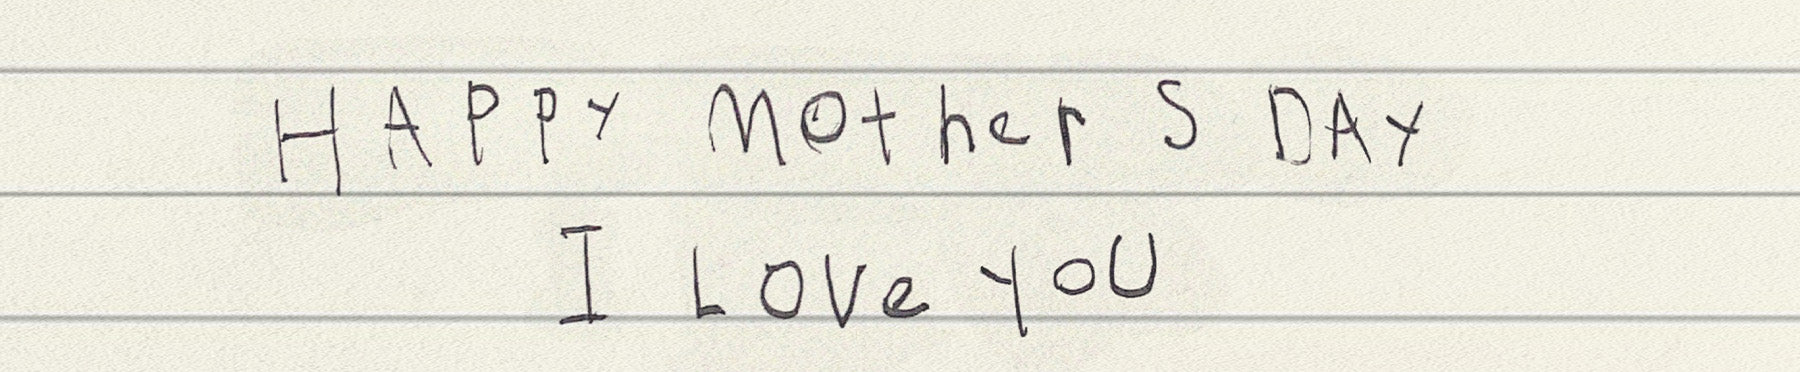 HAPPY MOther S DAY
I LOVe YOU